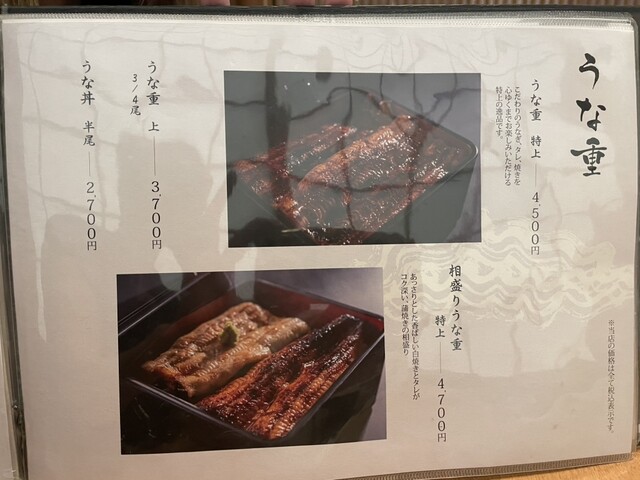 うな重
うな重 特上 ── 4,500円
こだわりのうなぎ、タレ、焼きを
心ゆくまでお楽しみいただける
特上の逸品です。
※当店の価格は全て税込表示です。
相盛りうな重
特上 ── 4,700円
あっさりとした香ばしい白焼きとタレが
コク深い、蒲焼きの相盛り
うな重 上 ── 3,700円
3/4尾
うな丼 半尾 ── 2,700円